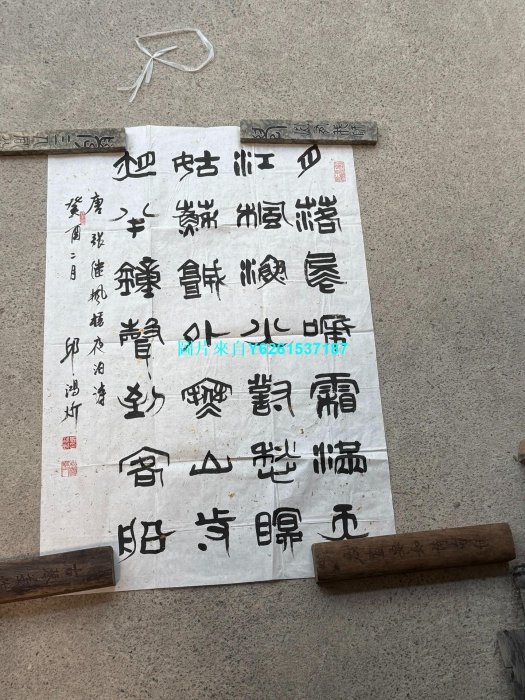 月落烏啼霜滿天
江楓漁火對愁眠
姑蘇城外寒山寺
夜半鐘聲到客船
唐 張繼楓橋夜泊詩
癸酉二月 邱鴻炘
圖片來自Y6261537187